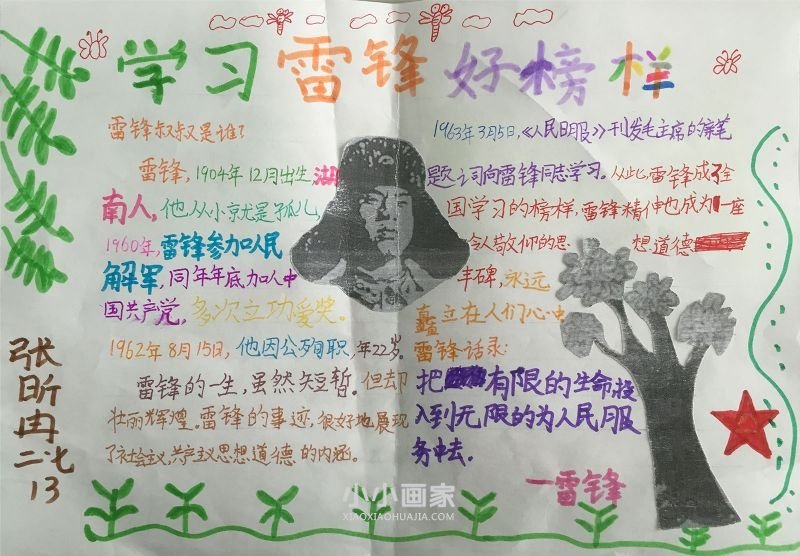 学习雷锋好榜样
雷锋叔叔是谁?
雷锋,1904年12月出生,湖
南人。他从小京尤是孤儿
1960年,雷锋参加人民
解军,同年年底,加入中
国共产党,多次立功爱奖。
1962年8月15日,他因公殉职,年22岁。
雷锋的一生,虽然短暂。但却
壮丽辉煌。雷锋的事迹,很好地展现
了社会主义,共产主义思想道德的内涵。
1963年3月5日,《人民日报》刊发毛主席的亲笔
题词向雷锋同志学习。从此,雷锋成了全
国学习的榜样,雷锋精神也成为一座
令人敬仰的思 想道德
丰碑,永远
矗立在人们心中
雷锋话录:
把 有限的生命投
入到无限的为人民服
务中去.
一雷锋
张昕冉
二·七
13
小小画家
XIAOXIAOHUAJIA.COM